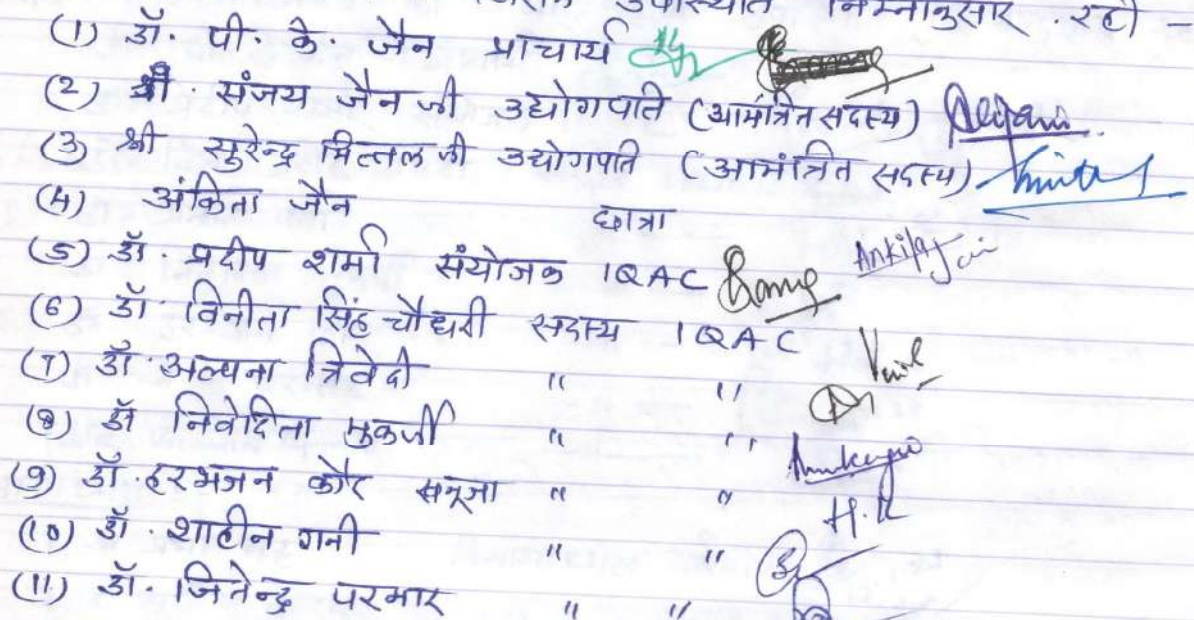 उपस्थिति निम्नानुसार रही -
(1) डॉ. पी. के. जैन प्राचार्य
(2) श्री संजय जैन जी उद्योगपति (आमंत्रित सदस्य)
(3) श्री सुरेन्द्र मित्तल जी उद्योगपति (आमंत्रित सदस्य)
(4) अंकिता जैन छात्रा
(5) डॉ. प्रदीप शर्मा संयोजक IQAC Ankita Jain
(6) डॉ. विनीता सिंह चौधरी सदस्य IQAC
(7) डॉ. अल्पना त्रिवेदी " "
(8) डॉ निवेदिता मुकर्जी " "
(9) डॉ. हरभजन कौर सनूजा " " H.K
(10) डॉ. शाहीन गनी " "
(11) डॉ. जितेन्द्र परमार " "